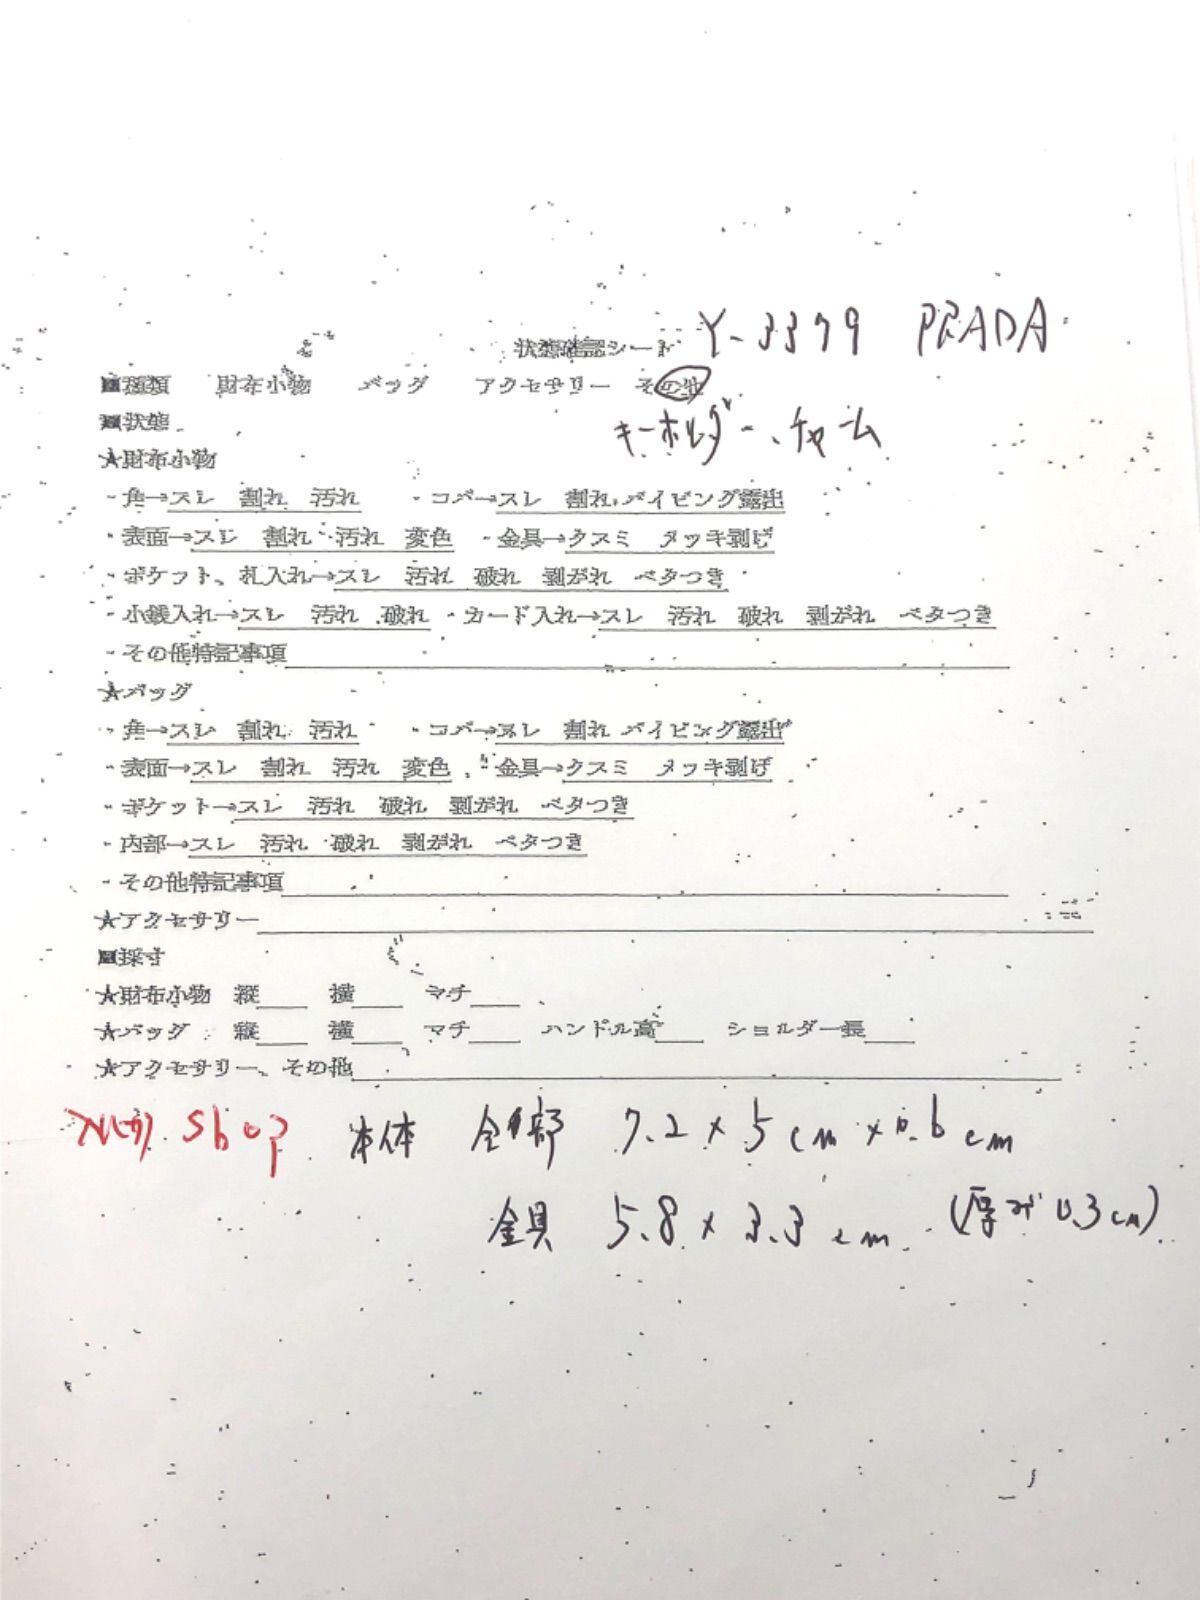 状態確認シート Y-3379 PRADA
■種類 財布小物 バッグ アクセサリー その他
■状態 キーホルダー、チャーム
★財布小物
・角→スレ 割れ 汚れ ・コバ→スレ 割れ パイピング露出
・表面→スレ 割れ 汚れ 変色 ・金具→クスミ メッキ剥げ
・ポケット、札入れ→スレ 汚れ 破れ 剥がれ ベタつき
・小銭入れ→スレ 汚れ 破れ ・カード入れ→スレ 汚れ 破れ 剥がれ ベタつき
・その他特記事項
★バッグ
・角→スレ 割れ 汚れ ・コバ→スレ 割れ パイピング露出
・表面→スレ 割れ 汚れ 変色 ・金具→クスミ メッキ剥げ
・ポケット→スレ 汚れ 破れ 剥がれ ベタつき
・内部→スレ 汚れ 破れ 剥がれ ベタつき
・その他特記事項
★アクセサリー
■採寸
★財布小物 縦 横 マチ
★バッグ 縦 横 マチ ハンドル高 ショルダー長
★アクセサリー、その他
shop 本体 全部 7.2×5cm×0.6cm
金具 5.8×3.3cm (厚み0.3cm)